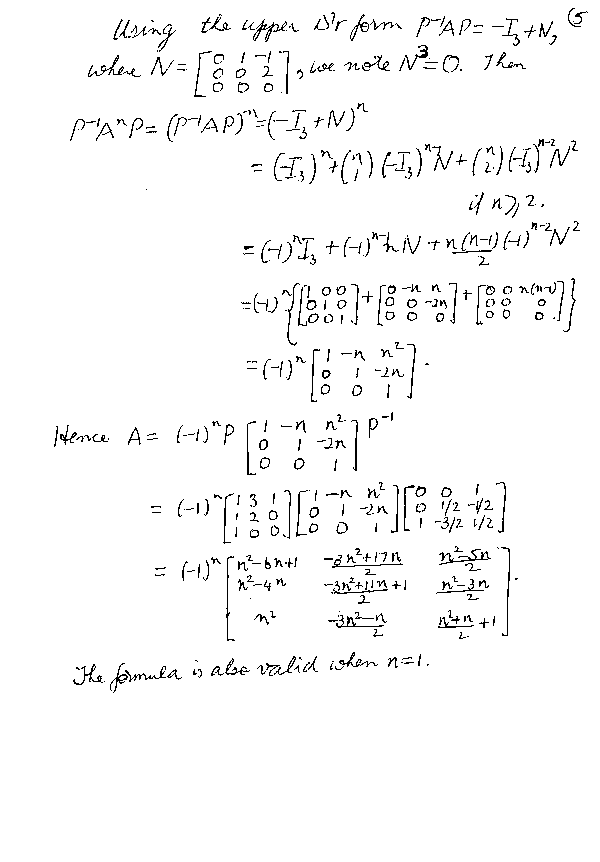 Using the upper Δ'r form P⁻¹AP = -I₃ + N, (5
where N = [0 1 -1; 0 0 2; 0 0 0], we note N³ = 0. Then
P⁻¹AⁿP = (P⁻¹AP)ⁿ = (-I₃ + N)ⁿ
= (-I₃)ⁿ + (n 1)(-I₃)ⁿ⁻¹N + (n 2)(-I₃)ⁿ⁻²N²
if n ≥ 2.
= (-1)ⁿI₃ + (-1)ⁿ⁻¹nN + n(n-1)/2 (-1)ⁿ⁻²N²
= (-1)ⁿ{[1 0 0; 0 1 0; 0 0 1] + [0 -n n; 0 0 -2n; 0 0 0] + [0 0 n(n-1); 0 0 0; 0 0 0]}
= (-1)ⁿ [1 -n n²; 0 1 -2n; 0 0 1].
Hence A = (-1)ⁿP [1 -n n²; 0 1 -2n; 0 0 1] P⁻¹
= (-1)ⁿ [1 3 1; 1 2 0; 1 0 0] [1 -n n²; 0 1 -2n; 0 0 1] [0 0 1; 0 1/2 -1/2; 1 -3/2 1/2]
= (-1)ⁿ [n²-6n+1 (-3n²+17n)/2 (n²-5n)/2; n²-4n (-3n²+11n)/2+1 (n²-3n)/2; n² (-3n²-n)/2 (n²+n)/2+1].
The formula is also valid when n=1.